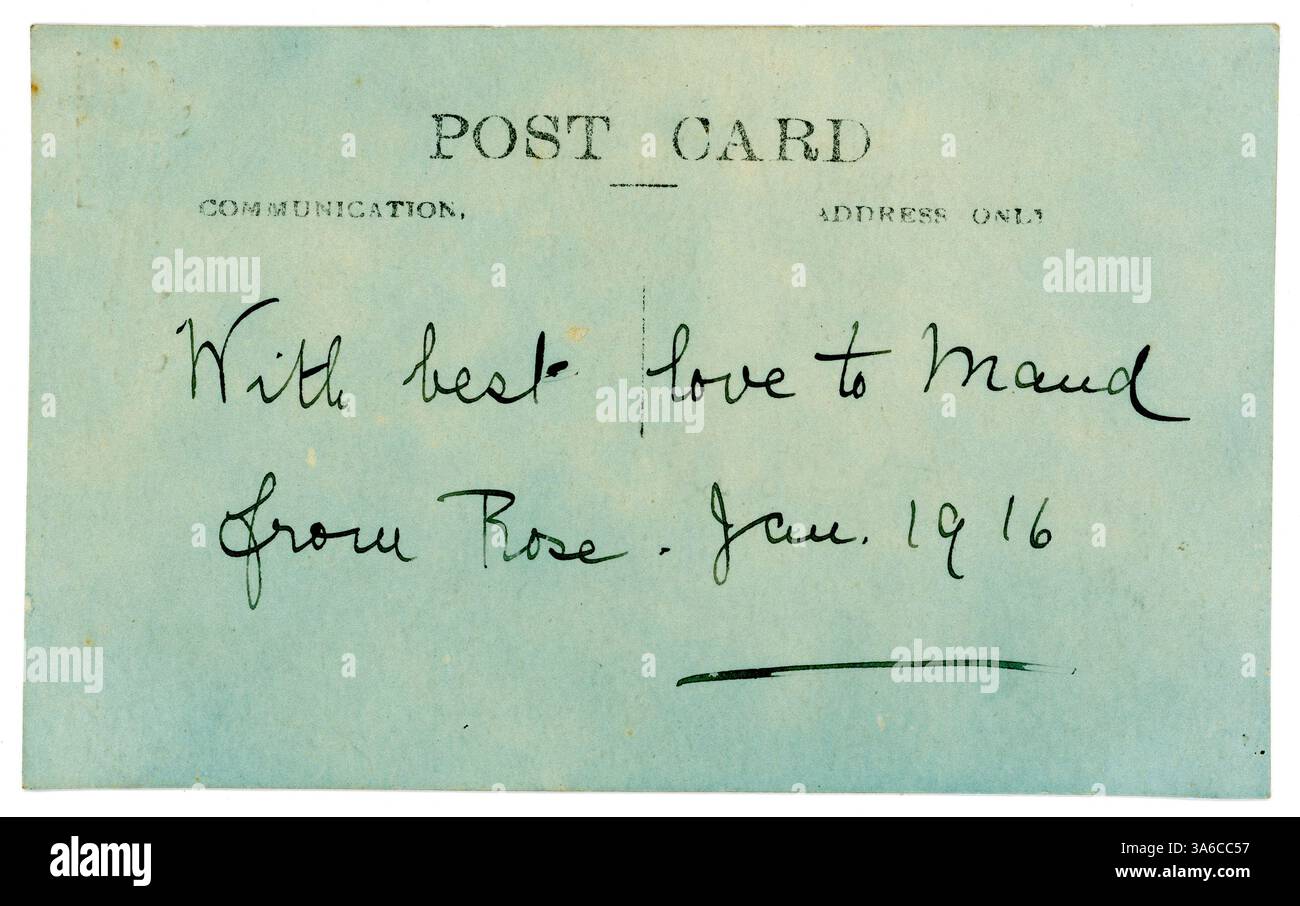 POST CARD
COMMUNICATION, ADDRESS ONLY
With best love to Maud
from Rose. Jan. 1916
alamy
alamy
Image ID: 3A6CC57
www.alamy.com